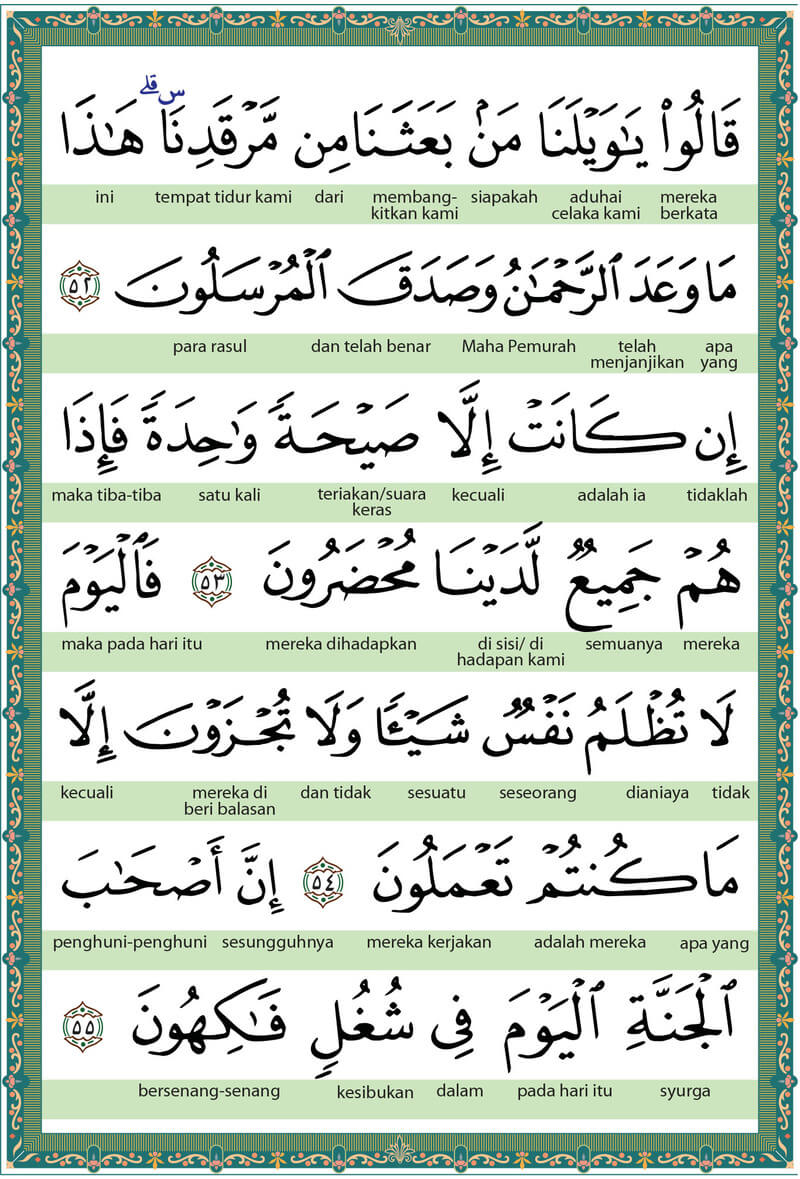 قَالُوا۟ يَـٰوَيْلَنَا مَنۢ بَعَثَنَا مِن مَّرْقَدِنَا ۜ ۗ هَـٰذَا
ini tempat tidur kami dari membang- siapakah aduhai mereka
kitkan kami celaka kami berkata
مَا وَعَدَ ٱلرَّحْمَـٰنُ وَصَدَقَ ٱلْمُرْسَلُونَ ٥٢
para rasul dan telah benar Maha Pemurah telah apa
menjanjikan yang
إِن كَانَتْ إِلَّا صَيْحَةً وَٰحِدَةً فَإِذَا
maka tiba-tiba satu kali teriakan/suara kecuali adalah ia tidaklah
keras
هُمْ جَمِيعٌ لَّدَيْنَا مُحْضَرُونَ ٥٣ فَٱلْيَوْمَ
maka pada hari itu mereka dihadapkan di sisi/ di semuanya mereka
hadapan kami
لَا تُظْلَمُ نَفْسٌ شَيْـًٔا وَلَا تُجْزَوْنَ إِلَّا
kecuali mereka di dan tidak sesuatu seseorang dianiaya tidak
beri balasan
مَا كُنتُمْ تَعْمَلُونَ ٥٤ إِنَّ أَصْحَـٰبَ
penghuni-penghuni sesungguhnya mereka kerjakan adalah mereka apa yang
ٱلْجَنَّةِ ٱلْيَوْمَ فِى شُغُلٍ فَـٰكِهُونَ ٥٥
bersenang-senang kesibukan dalam pada hari itu syurga